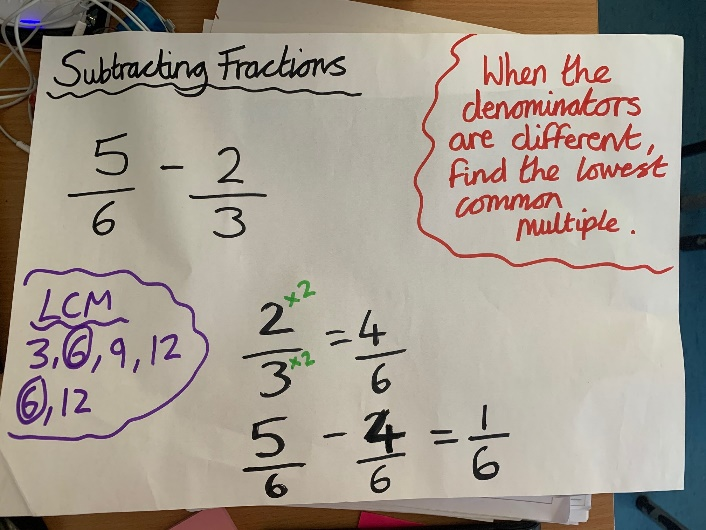 Subtracting Fractions
When the
denominators
are different,
find the lowest
common
multiple.
5/6 - 2/3
LCM
3, 6, 9, 12
6, 12
2×2/3×2 = 4/6
5/6 - 4/6 = 1/6